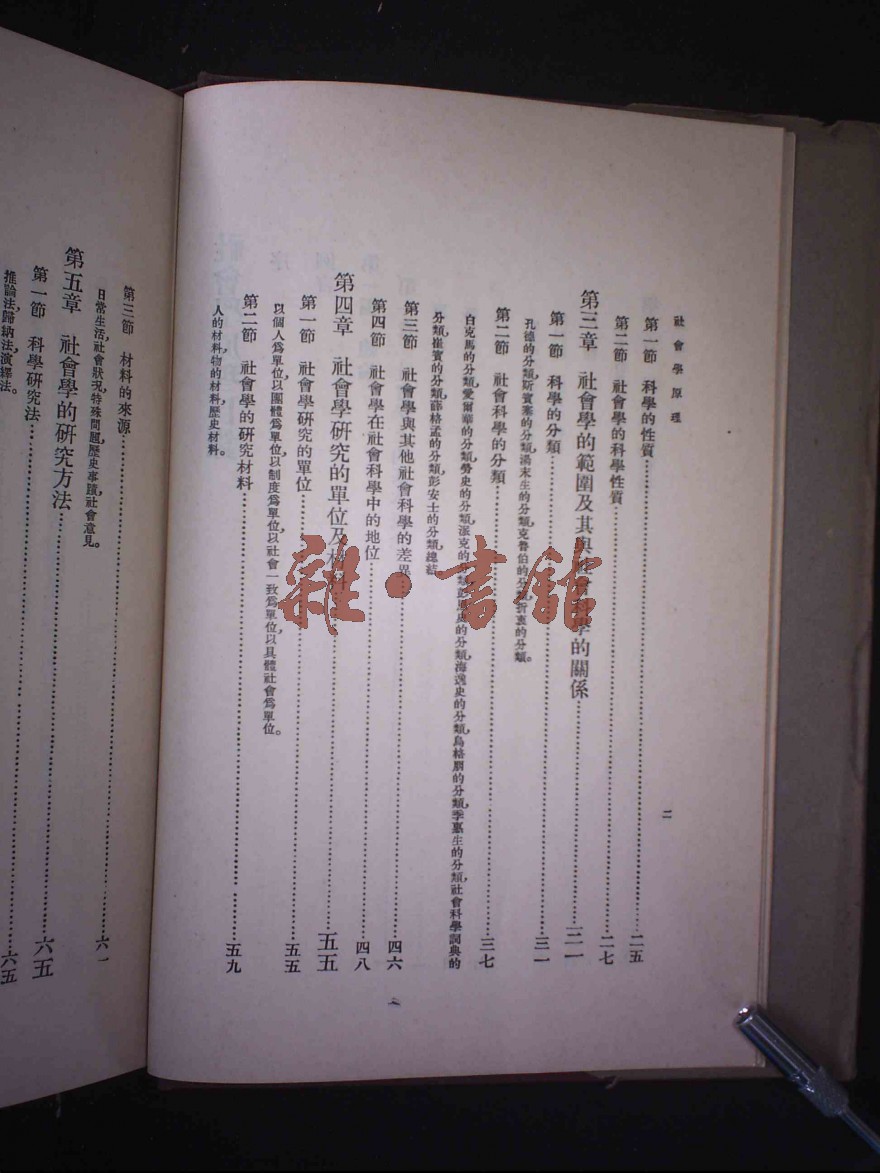 社會學原理
二
第一節 科學的性質 二五
第二節 社會學的科學性質 二七
第三章 社會學的範圍及其與社會科學的關係 三一
第一節 科學的分類 三一
孔德的分類,斯賓塞的分類,湯末生的分類,克魯伯的分類,折衷的分類。
第二節 社會科學的分類 三七
白克馬的分類,愛爾華的分類,勞史的分類,派克的分類,史的分類,海逸史的分類,烏格朋的分類,季亭生的分類,社會科學詞典的
分類,崔賓的分類,薛格孟的分類,彭安士的分類,總結
第三節 社會學與其他社會科學的差異 四六
第四節 社會學在社會科學中的地位 四八
第四章 社會學研究的單位及材料 五五
第一節 社會學研究的單位 五五
以個人爲單位,以團體爲單位,以制度爲單位,以社會一致爲單位,以具體社會爲單位。
第二節 社會學的研究材料 五九
人的材料,物的材料,歷史材料。
第三節 材料的來源 六一
日常生活,社會狀況,特殊問題,歷史事蹟,社會意見。
第五章 社會學的研究方法 六五
第一節 科學研究法 六五
推論法,歸納法,演繹法。
雜·書館